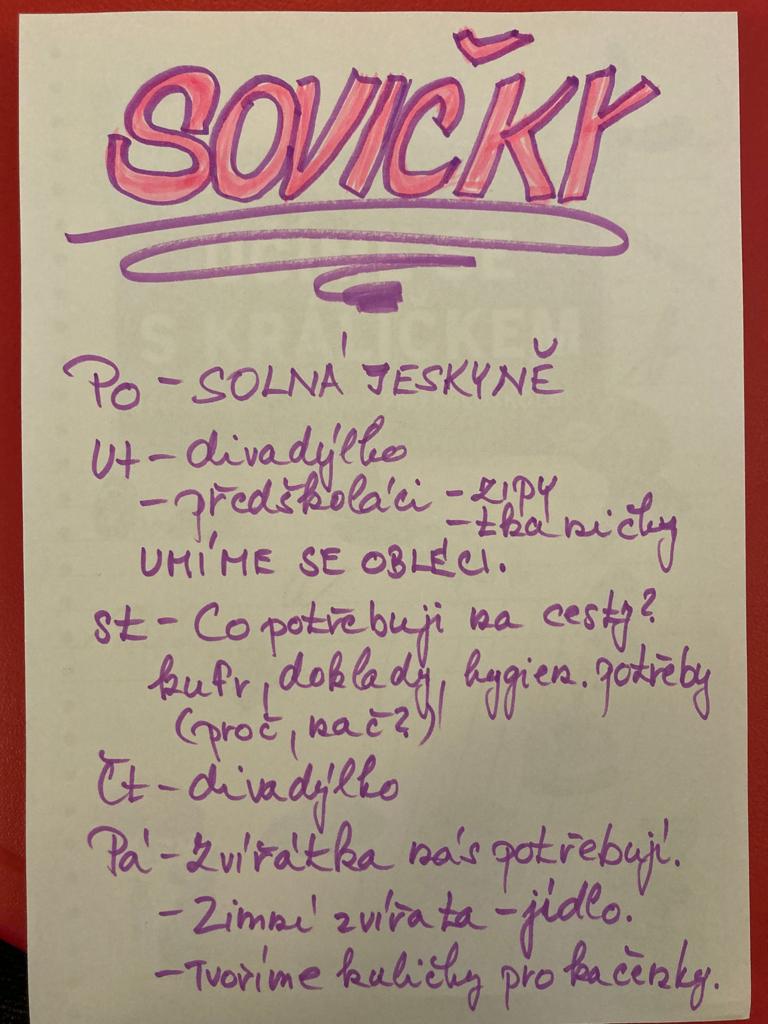 SOVIČKY
Po - SOLNÁ JESKYNĚ
Út - divadýlko
- předškoláci - ZIPY
- tkaničky
UMÍME SE OBLÉCI.
St - Co potřebuji na cesty?
kufr, doklady, hygien. potřeby
(proč, nač?)
Čt - divadýlko
Pá - Zvířátka nás potřebují.
- Zimní zvířata - jídlo.
- Tvoříme kuličky pro kačenky.